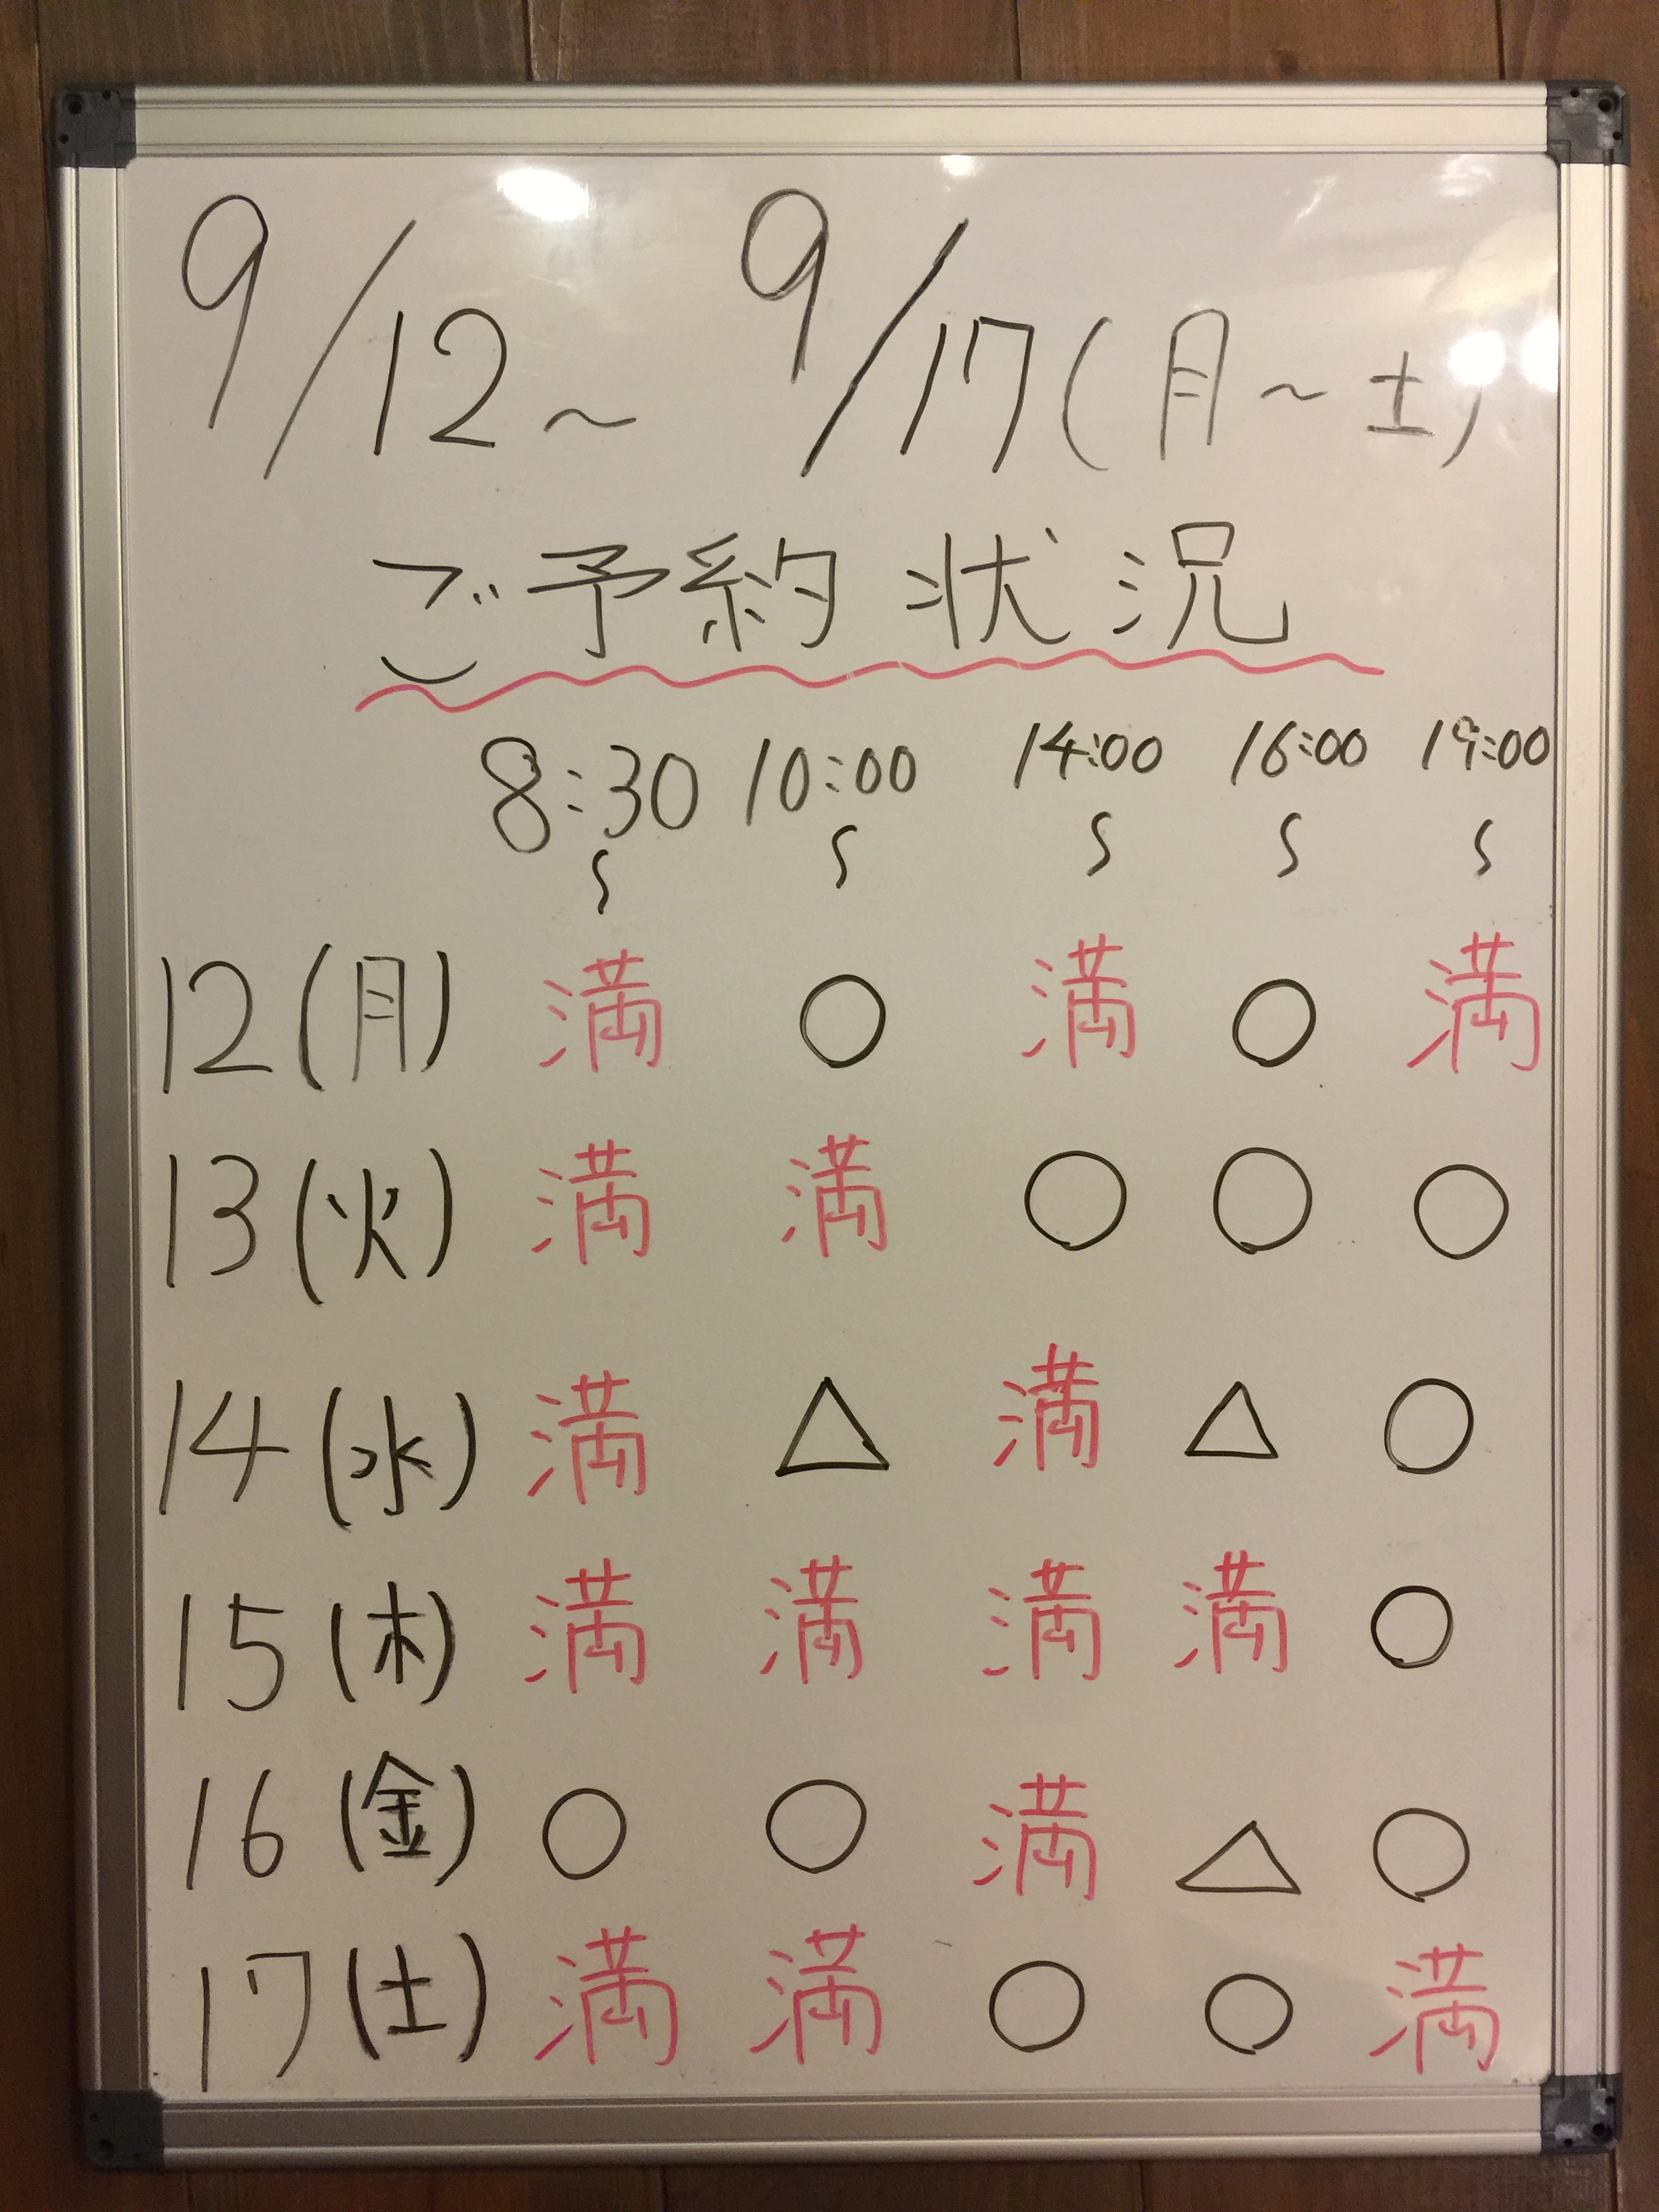 9/12～ 9/17(月～土)
ご予約状況
8:30～ 10:00～ 14:00～ 16:00～ 19:00～
12(月) 満 ○ 満 ○ 満
13(火) 満 満 ○ ○ ○
14(水) 満 △ 満 △ ○
15(木) 満 満 満 満 ○
16(金) ○ ○ 満 △ ○
17(土) 満 満 ○ ○ 満